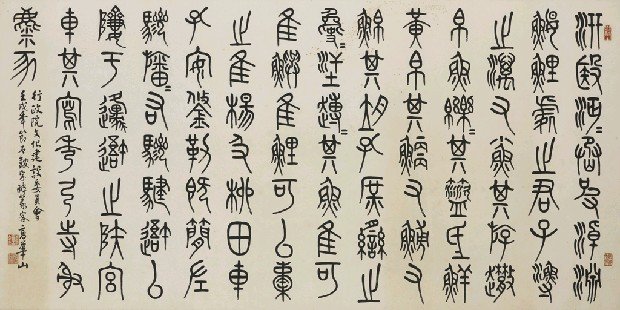 汧殹沔=丞皮淖淵
鰋鯉處之君子漁
之澫又魚其斿
帛魚皪=其盜氐鮮
黃帛其鯾又鰟又
鮊其孔庶臠之
=汗=趣=其魚隹可
隹鱮隹鯉可以橐
之隹楊及柳田車
孔安鋚勒既簡左
驂旛=右驂騝避以
隮于邍避止陝宮
車其寫秀弓寺射
麋豕
行政院文化建設委員會
壬戌年節石鼓字 高華山